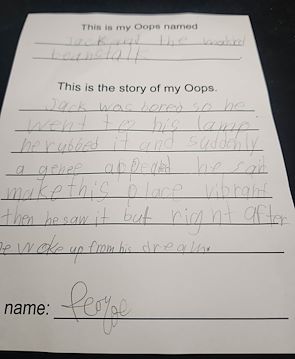 This is my Oops named
Jack and the
beanstalk
This is the story of my Oops.
Jack was bored so he
went to his lamp
he rubbed it and suddonly
a genee appeard he said
make this place vibrant
then he saw it but right after
he woke up from his dream.
name: